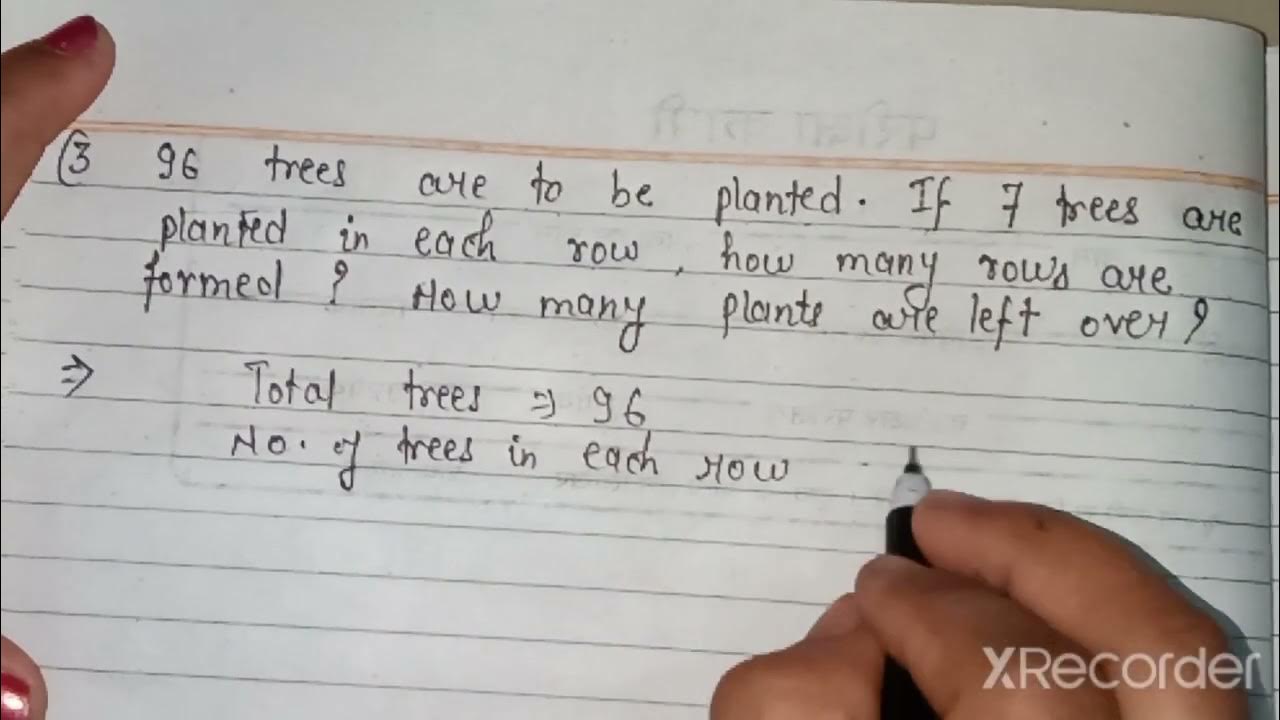 (3 96 trees are to be planted. If 7 trees are
planted in each row, how many rows are
formed ? How many plants are left over ?
⇒ Total trees ⇒ 96
No. of trees in each row
XRecorder